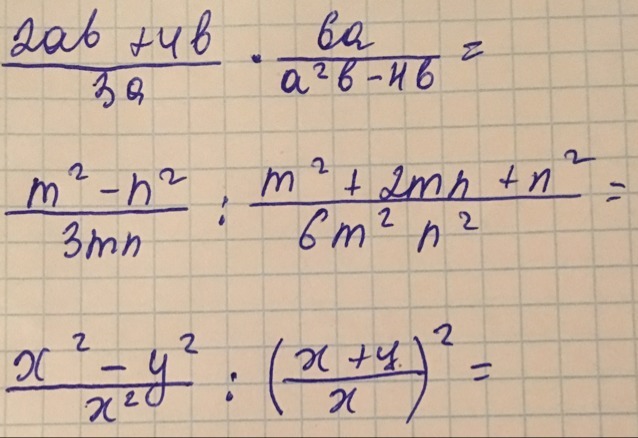 (2ab + 4b)/(3a) · (6a)/(a²b - 4b) =
(m² - n²)/(3mn) : (m² + 2mn + n²)/(6m² n²) =
(x² - y²)/(x²) : ((x + y)/x)² =